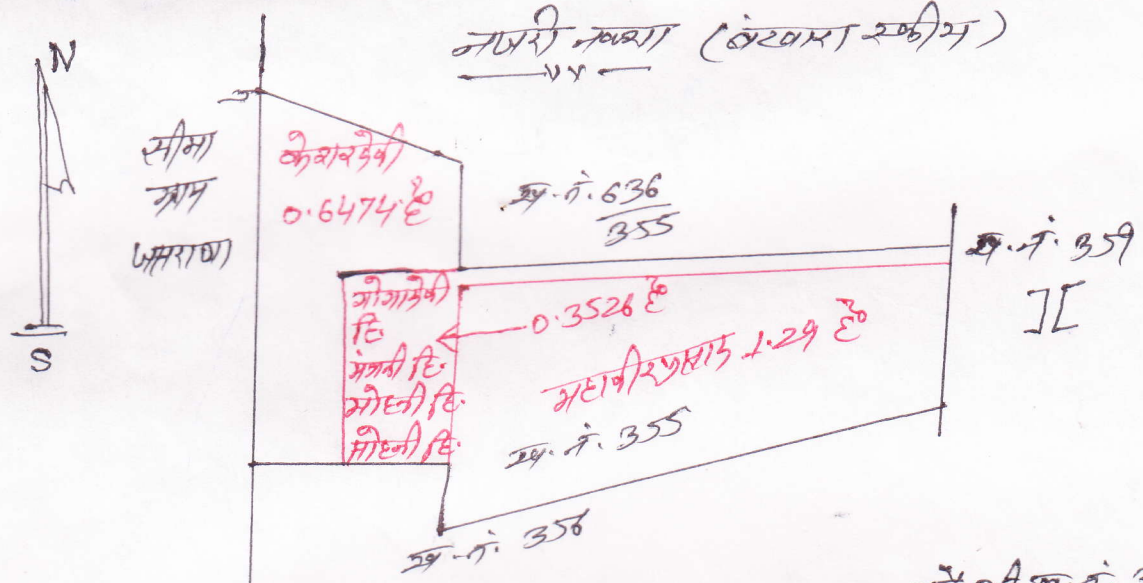 नजरी नक्शा (बंटवारा स्कीम)
N
S
सीमा
ग्राम
केशरदेवी
0.6474 है
ख.नं. 636
355
ख.नं. 359
गोगादेवी
हि.
मंजली हि.
मोहनी हि.
मोहनी हि.
0.3526 है
महावीरप्रसाद 1.29 है
ख.नं. 355
ख.नं. 356